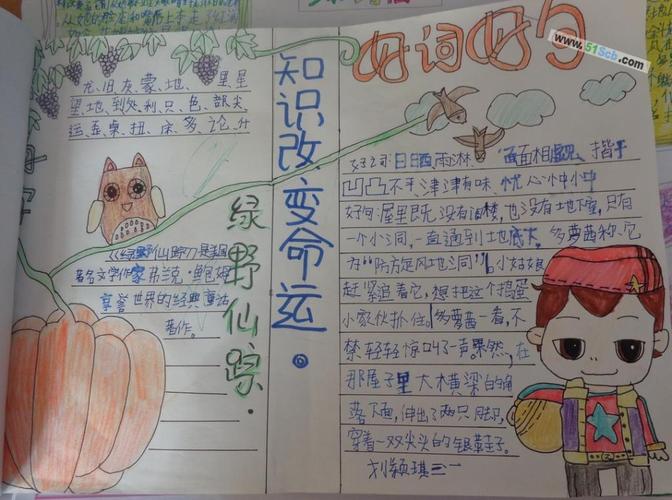 好词好句
www.51Scb.com
尤旧灰蒙地、星星
望地到处利只色部尖
运连桌扭床多论什
知识改变命运。
绿野仙踪.
《绿野仙踪》是美国
著名文学作家弗兰克·鲍姆
享誉世界的经典童话
著作。
好词:日晒雨淋 面面相觑 揩干
凹凸不平津津有味 忧心忡忡
好句屋里既没有阁楼,也没有地下室,只有
一个小洞,一直通到地底大。多萝西称它
为“防方旋风地洞”小姑娘
赶紧追着它,想把这个捣蛋
小家伙抓住。多萝西一看,不
禁轻轻惊叫了一声。果然,在
那屋子里大横梁的角
落下面,伸出了两只脚,
穿着一双尖头的银鞋子。
刘颖琪三一